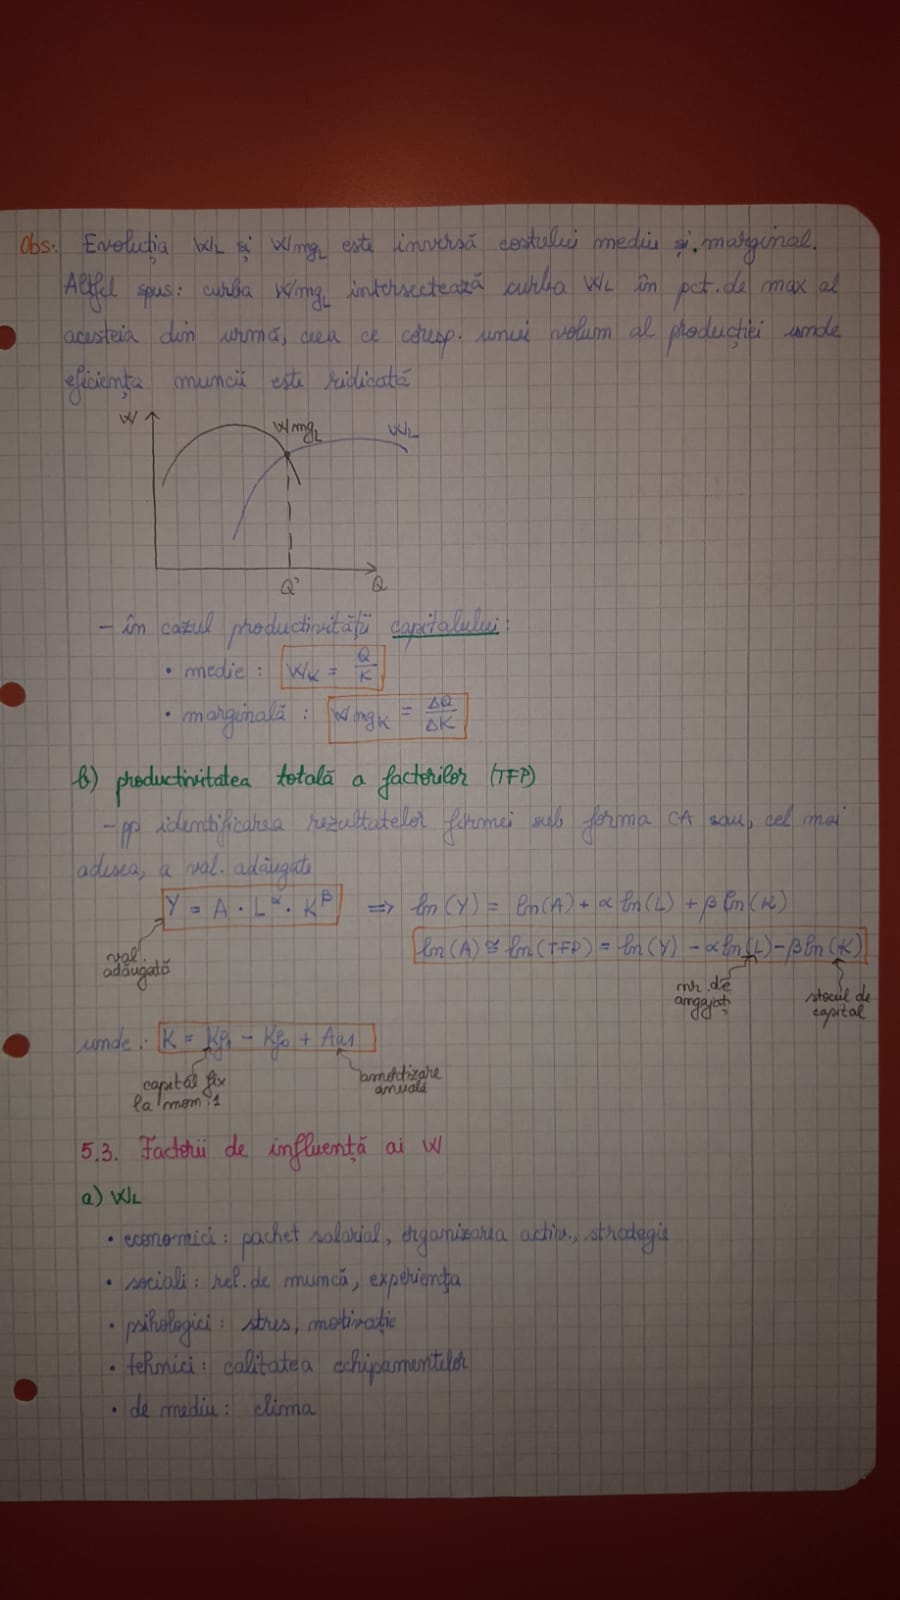 Obs: Evoluția WL și WmgL este inversă costului mediu și marginal.
Altfel spus: curba WmgL intersectează curba WL în pct. de max al
acesteia din urmă, ceea ce coresp. unui volum al producției unde
eficiența muncii este ridicată
W
WmgL
WL
Q'
Q
- în cazul productivității capitalului:
• medie: WK = Q/K
• marginală: WmgK = ΔQ/ΔK
b) productivitatea totală a factorilor (TFP)
- pp identificarea rezultatelor firmei sub forma CA sau, cel mai
adesea, a val. adăugate
Y = A · L^α · K^β => ln(Y) = ln(A) + α ln(L) + β ln(K)
val. adăugată
ln(A) ≅ ln(TFP) = ln(Y) - α ln(L) - β ln(K)
nr. de angajați
stocul de capital
unde: K = Kf1 - Kf0 + Aa1
capital fix la mom. 1
amortizare anuală
5.3. Factorii de influență ai W
a) WL
• economici: pachet salarial, organizarea activ., strategie
• sociali: rel. de muncă, experiența
• psihologici: stres, motivație
• tehnici: calitatea echipamentelor
• de mediu: clima